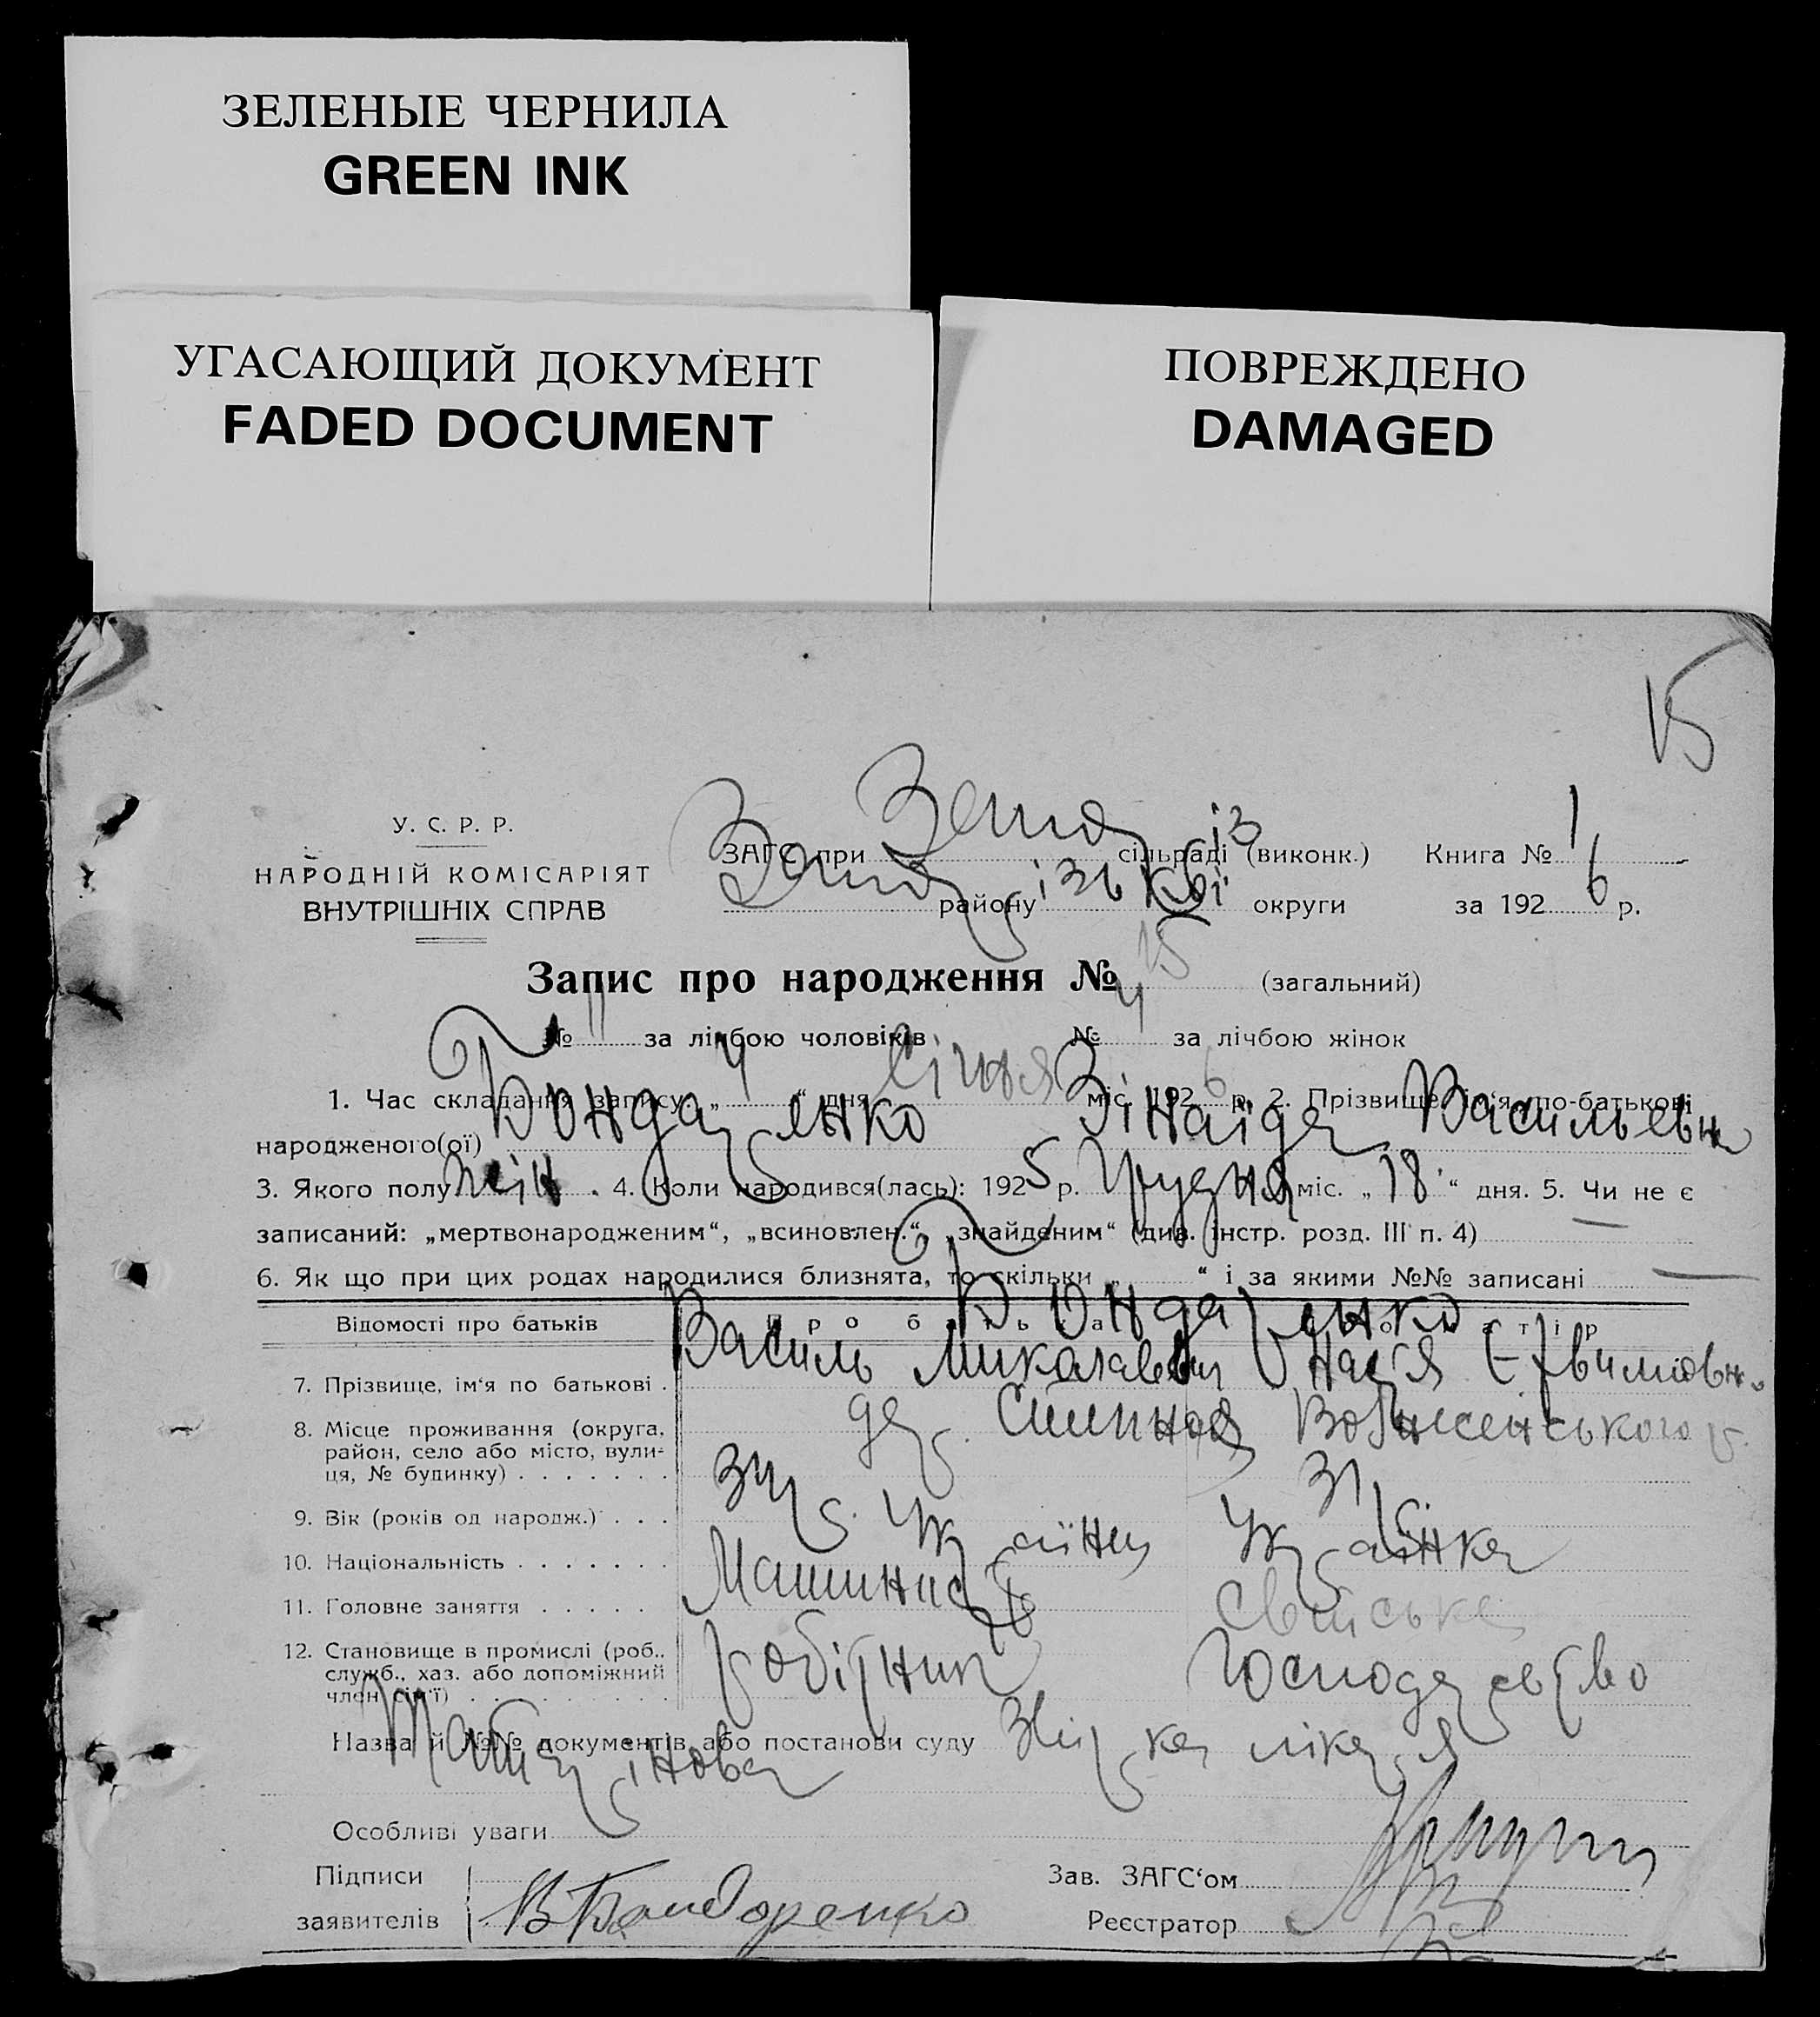 ЗЕЛЕНЫЕ ЧЕРНИЛА
GREEN INK
УГАСАЮЩИЙ ДОКУМЕНТ
FADED DOCUMENT
ПОВРЕЖДЕНО
DAMAGED
15
У. С. Р. Р.
НАРОДНІЙ КОМІСАРІЯТ
ВНУТРІШНІХ СПРАВ
ЗАГС при сільраді (виконк.) Книга № 1
району округи за 1926 р.
Запис про народження № 15 (загальний)
№ 11 за лічбою чоловіків № 4 за лічбою жінок
1. Час складання запису „4“ дня Січня міс. 1926 р. 2. Прізвище, ім'я, по-батькові
народженого(ої) Бондаренко Зінаїда Васильевна
3. Якого полу жін. 4. Коли народився(лась): 1925 р. Грудня міс. „18“ дня. 5. Чи не є
записаний: „мертвонародженим“, „всиновлен.“, „знайденим“ (див. інстр. розд. III п. 4) —
6. Як що при цих родах народилися близнята, то скільки „ “ і за якими №№ записані —
Відомості про батьків Про батька Про матір
Бондаренко
7. Прізвище, ім'я по батькові . Василь Миколаевич
8. Місце проживання (округа, район, село або місто, вулиця, № будинку)
9. Вік (років од народж.) . . . 34 р. 31 р.
10. Національність . . . . . . . Українец Українка
11. Головне заняття . . . . . Машинист свійське
12. Становище в промислі (роб., служб., хаз. або допоміжний член сім'ї) робітник Господарство
Назва й №№ документів або постанови суду лікаря
Особливі уваги
Підписи
заявителів В Бондаренко
Зав. ЗАГС'ом
Реєстратор